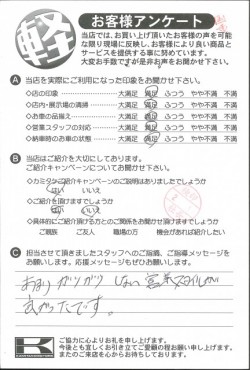 軽
お客様アンケート
当店では、お買い上げ頂いたお客様の声を可能
な限り現場に反映し、お客様により良い商品と
サービスを提供する事に努めています。
大変お手数ですが是非お声をお聞かせ下さい。
A 当店を実際にご利用になった印象をお聞かせ下さい。
◇店の印象 大満足 満足 ふつう やや不満 不満
◇店内・展示場の清掃 大満足 満足 ふつう やや不満 不満
◇お車の品揃え 大満足 満足 ふつう やや不満 不満
◇営業スタッフの対応 大満足 満足 ふつう やや不満 不満
◇納車時のお車の状態 大満足 満足 ふつう やや不満 不満
B 当店はご紹介を大切にしております。
ご紹介キャンペーンについてお聞かせ下さい。
◇カミタケご紹介キャンペーンのご説明はありましたでしょうか
はい いいえ
◇ご紹介を頂けますでしょうか
はい いいえ
◇具体的にご紹介頂ける方とのご関係をお聞かせ頂けますでしょうか
ご親族 ご友人 職場の方 機会があれば紹介したい
C 担当させて頂きましたスタッフへのご指摘、ご指導メッセージを
お願いします。応援メッセージもぜひお願いします。
あまりガツガツしない営業スタイルが
よかったです。
K
ご協力に心よりお礼を申し上げます。
今後とも宜しくお引き立てご愛顧の程お願い申し上げます。
またのご来店を心からお待ちしております。